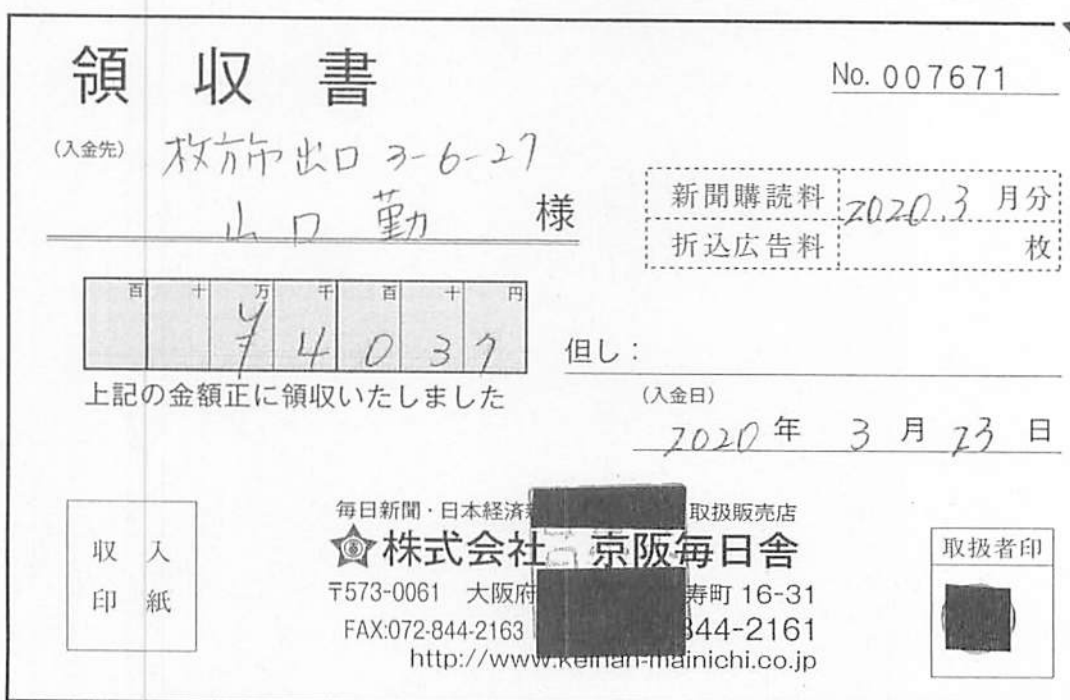 領収書
No. 007671
(入金先) 枚方市出口 3-6-27
山口 勤 様
新聞購読料 2020.3 月分
折込広告料 枚
百 十 万 千 百 十 円
¥ 4 0 3 7
上記の金額正に領収いたしました
但し:
(入金日)
2020 年 3 月 23 日
収入印紙
毎日新聞・日本経済 取扱販売店
株式会社 京阪毎日舎
〒573-0061 大阪府 寿町 16-31
FAX:072-844-2163 844-2161
http://www.keihan-mainichi.co.jp
取扱者印